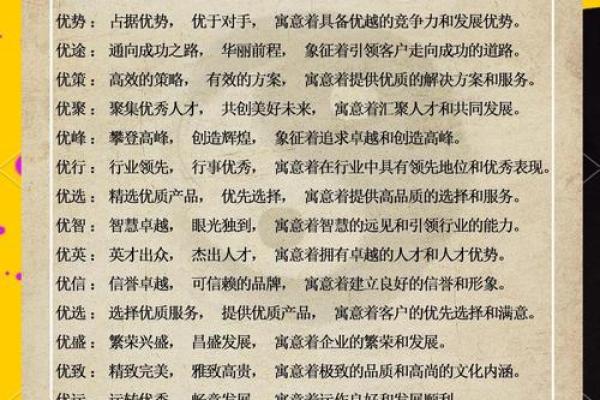 优势： 占据优势， 优于对手， 寓意着具备优越的竞争力和发展优势。
优途： 通向成功之路， 华丽前程， 象征着引领客户走向成功的道路。
优策： 高效的策略， 有效的方案， 寓意着提供优质的解决方案和服务。
优聚： 聚集优秀人才， 共创美好未来， 寓意着汇聚人才和共同发展。
优峰： 攀登高峰， 创造辉煌， 象征着追求卓越和创造高峰。
优行： 行业领先， 行事优秀， 寓意着在行业中具有领先地位和优秀表现。
优选： 精选优质产品， 优先选择， 寓意着提供高品质的选择和服务。
优智： 智慧卓越， 眼光独到， 寓意着智慧的远见和引领行业的能力。
优英： 英才出众， 杰出人才， 寓意着拥有卓越的人才和人才优势。
优信： 信誉卓越， 可信赖的品牌， 寓意着建立良好的信誉和形象。
优选： 选择优质服务， 提供优质产品， 寓意着客户的优先选择和满意。
优盛： 繁荣兴盛， 昌盛发展， 寓意着企业的繁荣和发展。
优致： 精致完美， 雅致高贵， 寓意着极致的品质和高尚的文化内涵。
优运： 运转优秀， 畅意发展， 寓意着运作良好和发展顺利。